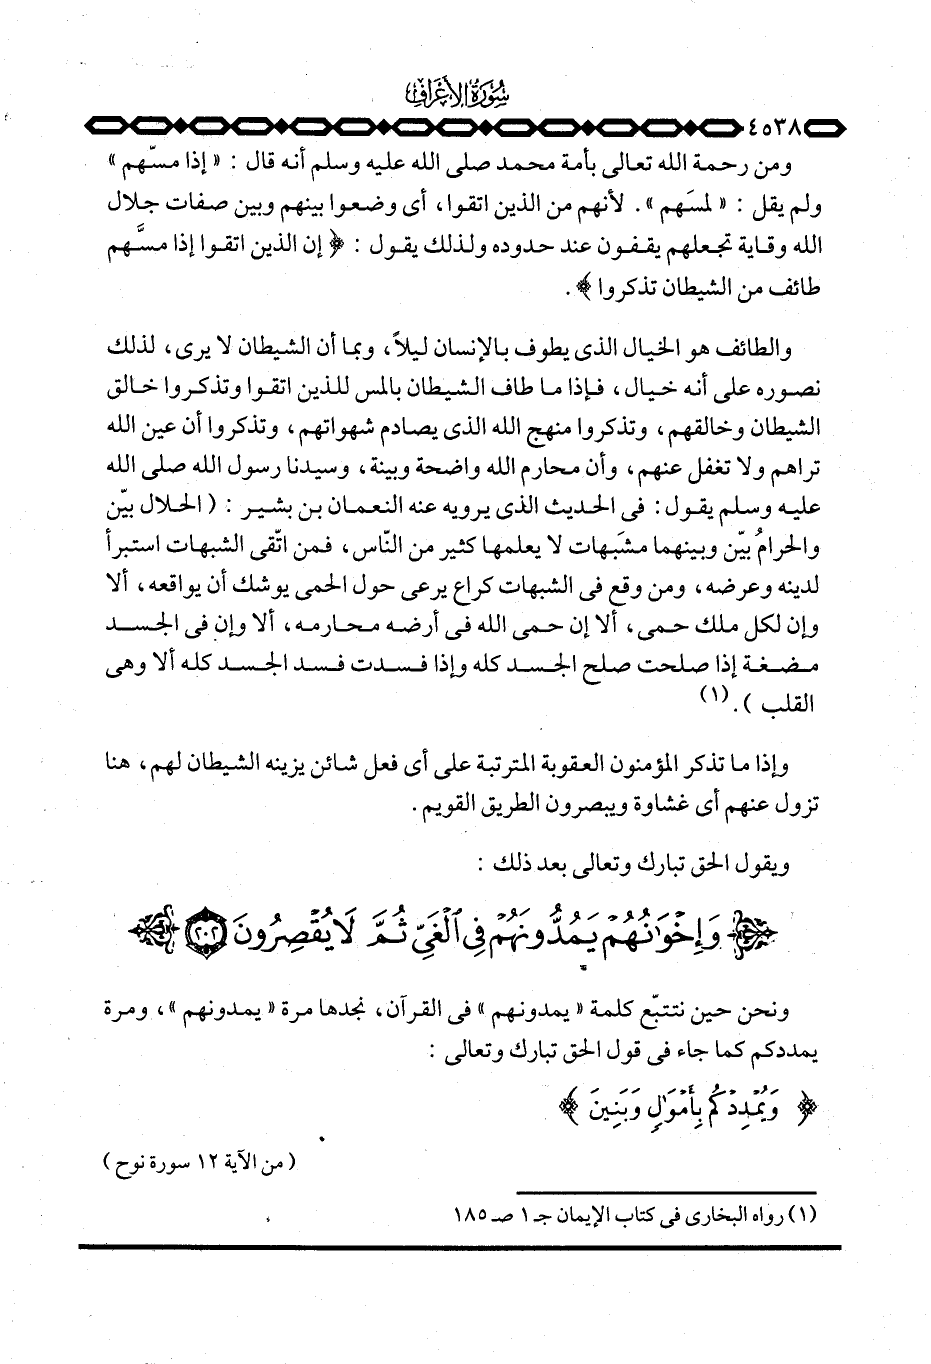 سُورَةُ الأَعْرَافِ
٤٥٣٨
ومن رحمة الله تعالى بأمة محمد صلى الله عليه وسلم أنه قال : « إذا مسّهم »
ولم يقل : « لمسَهم ». لأنهم من الذين اتقوا، أى وضعوا بينهم وبين صفات جلال
الله وقاية تجعلهم يقفون عند حدوده ولذلك يقول : ﴿ إن الذين اتقوا إذا مسَّهم
طائف من الشيطان تذكروا ﴾ .
والطائف هو الخيال الذى يطوف بالإنسان ليلاً، وبما أن الشيطان لا يرى، لذلك
نصوره على أنه خيال، فإذا ما طاف الشيطان بالمس للذين اتقوا وتذكروا خالق
الشيطان وخالقهم، وتذكروا منهج الله الذى يصادم شهواتهم، وتذكروا أن عين الله
تراهم ولا تغفل عنهم، وأن محارم الله واضحة وبينة، وسيدنا رسول الله صلى الله
عليه وسلم يقول : فى الحديث الذى يرويه عنه النعمان بن بشير : ( الحلال بيّن
والحرامُ بيّن وبينهما مشبَهات لا يعلمها كثير من النّاس، فمن اتّقى الشبهات استبرأ
لدينه وعرضه، ومن وقع فى الشبهات كراع يرعى حول الحمى يوشك أن يواقعه، ألا
وإن لكل ملك حمى، ألا إن حمى الله فى أرضه محارمه، ألا وإن فى الجسد
مضغة إذا صلحت صلح الجسد كله وإذا فسدت فسد الجسد كله ألا وهى
القلب ). (١)
وإذا ما تذكر المؤمنون العقوبة المترتبة على أى فعل شائن يزينه الشيطان لهم، هنا
تزول عنهم أى غشاوة ويبصرون الطريق القويم .
ويقول الحق تبارك وتعالى بعد ذلك :
﴿ وَإِخْوَٰنُهُمْ يَمُدُّونَهُمْ فِى ٱلْغَىِّ ثُمَّ لَا يُقْصِرُونَ ﴿٢٠٢﴾ ﴾
ونحن حين نتتبّع كلمة « يمدونهم » فى القرآن، نجدها مرة « يمدونهم »، ومرة
يمددكم كما جاء فى قول الحق تبارك وتعالى :
﴿ وَيُمْدِدْكُم بِأَمْوَٰلٍ وَبَنِينَ ﴾
( من الآية ١٢ سورة نوح )
(١) رواه البخارى فى كتاب الإيمان جـ ١ صـ ١٨٥